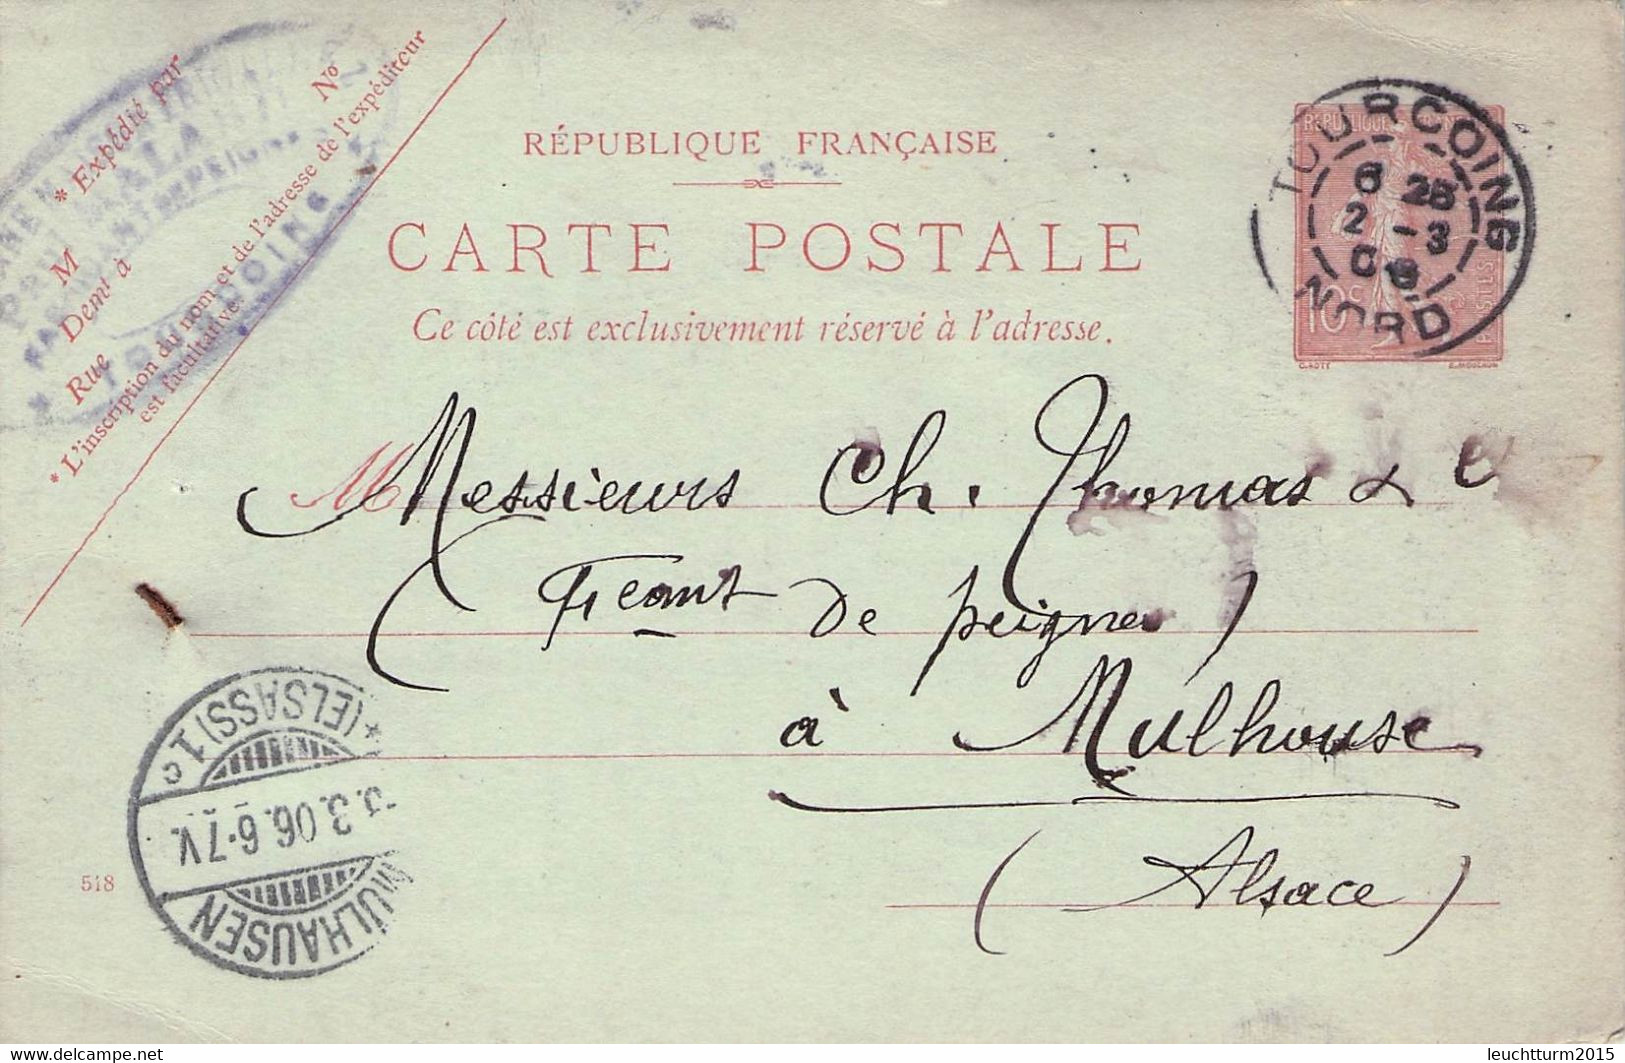 * Expédié par
M
No
Demt à
Rue
* L'inscription du nom et de l'adresse de l'expéditeur
est facultative.
TOURCOING
RÉPUBLIQUE FRANÇAISE
CARTE POSTALE
Ce côté est exclusivement réservé à l'adresse.
TOURCOING
6 25
2 -3
06
NORD
10c
O.ROTY
E.MOUCHON
M
Messieurs Ch. Thomas & C
( Fcant de peignes )
à Mulhouse
( Alsace )
MÜLHAUSEN
3.3.06.6-7V.
*(ELSASS)1c
518
leuchtturm2015